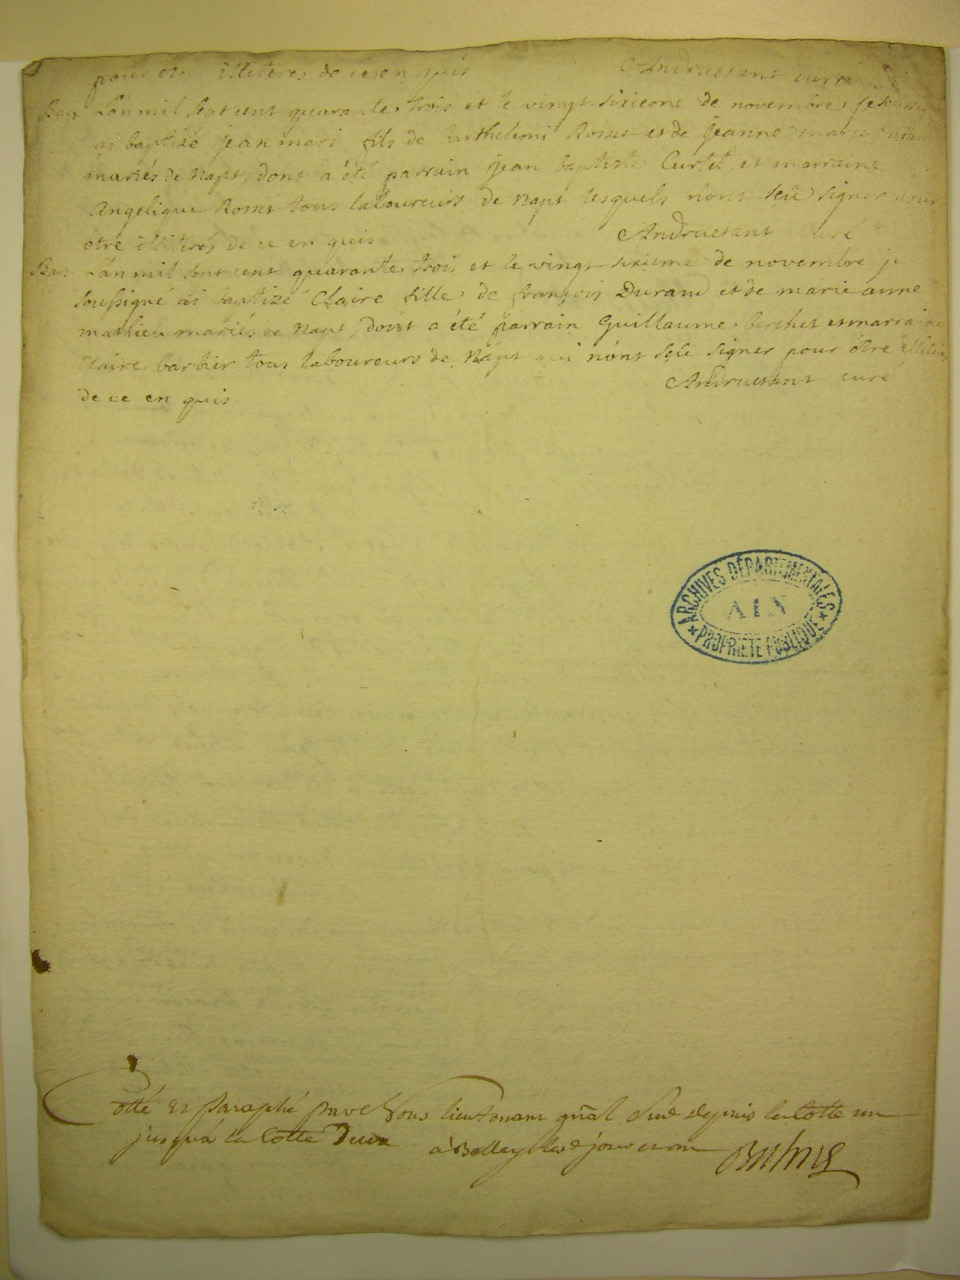 pour etre illiteres de ce en quis Andruetant curé
Bap. Lan mil sept cent quarante trois et le vingt sixieme de novembre je soussigné
ai baptizé jean mari fils de barthelemi Rosset et de jeanne marie
mariés de Napt, dont a été parrain jean baptiste Curtet, et marraine
Angelique Rosset tous laboureurs de Napt lesquels n'ont sçû signer pour
etre illiteres de ce en quis Andruetant curé
Bap. Lan mil sept cent quarante trois et le vingt sixieme de novembre je
soussigné ai baptizé Claire fille de françois Durand et de marie anne
mathieu mariés de Napt, dont a été parrain Guillaume berchet et marraine
Claire barbier tous laboureurs de Napt qui n'ont sçû signer pour être illiteres
Andruetant curé
de ce en quis
ARCHIVES DÉPARTEMENTALES
AIN
PROPRIÉTÉ PUBLIQUE
Cotté et Paraphé par Nous lieutenant gñal depuis la Cotte un
jusqu'a la Cotte Deux a Belley les jour et an